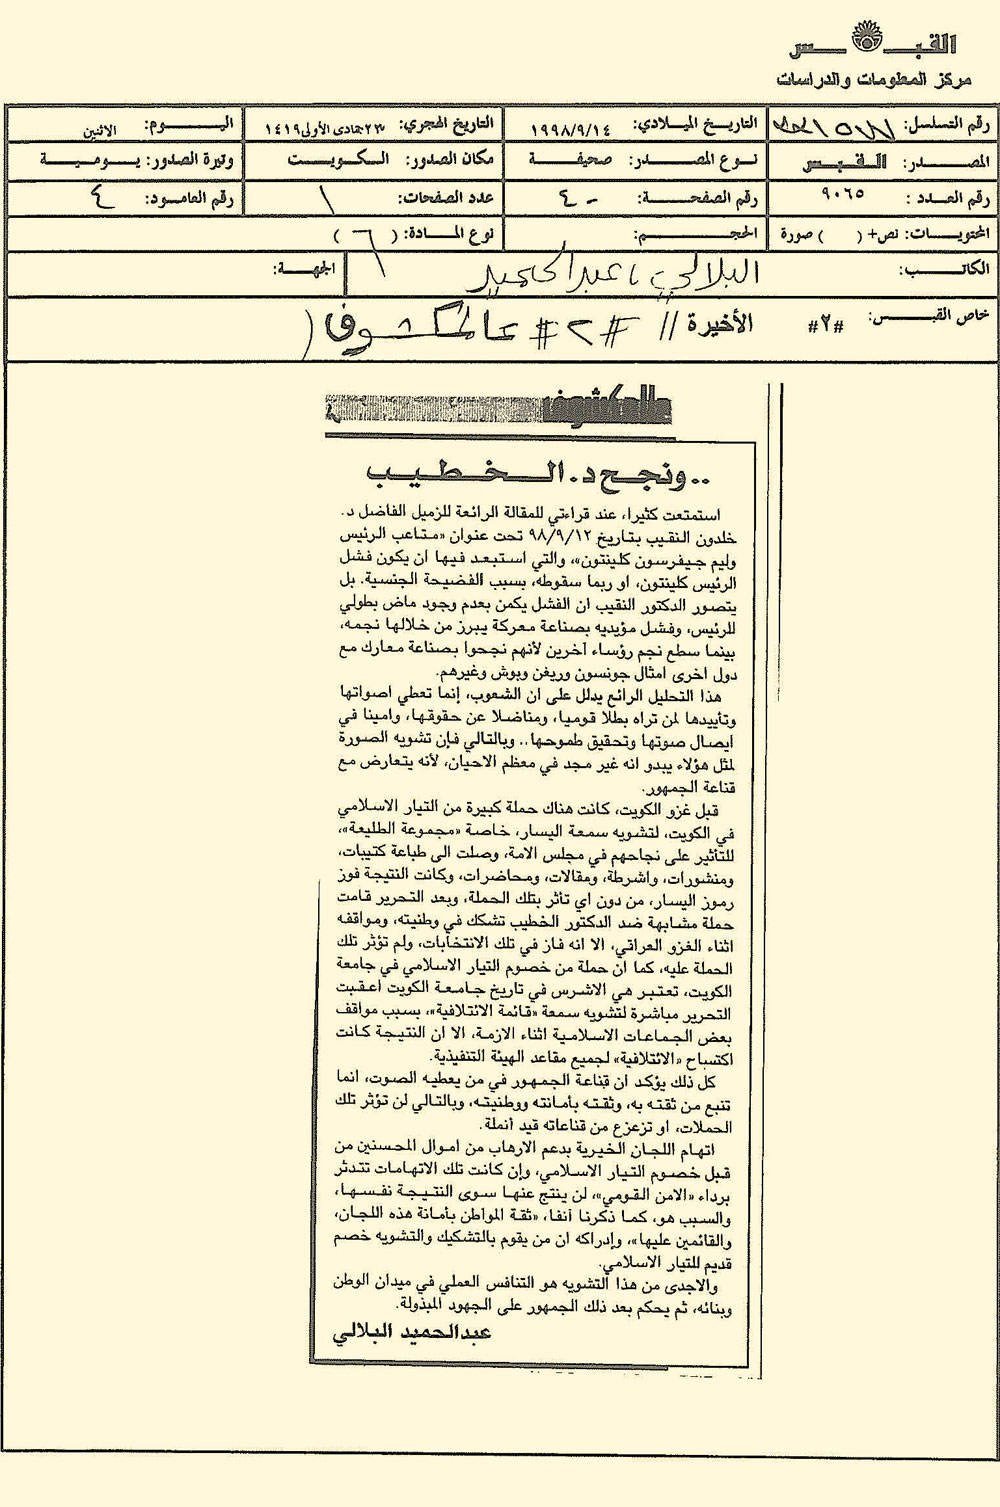 القبس
مركز المعلومات والدراسات
رقم التسلسل:
التاريخ الميلادي: ١٩٩٨/٩/١٤
التاريخ الهجري: ٢٣ جمادى الأولى ١٤١٩
اليوم: الاثنين
المصدر: القبس
نوع المصدر: صحيفة
مكان الصدور: الكويت
وتيرة الصدور: يومية
رقم العدد: ٩٠٦٥
رقم الصفحة: ٤٠
عدد الصفحات: ١
رقم العامود: ٤
المحتويات: نص+ ( ) صورة
الحجم:
نوع المادة: (٦)
الكاتب: البلالي، عبدالحميد
الجهة:
خاص القبس: #٢# الأخيرة // #٢# عالمكشوف (
عالمكشوف
..ونجح د. الخطيب
استمتعت كثيرا، عند قراءتي للمقالة الرائعة للزميل الفاضل د.
خلدون النقيب بتاريخ ٩٨/٩/١٢ تحت عنوان «متاعب الرئيس
وليم جيفرسون كلينتون»، والتي استبعد فيها ان يكون فشل
الرئيس كلينتون، او ربما سقوطه، بسبب الفضيحة الجنسية. بل
يتصور الدكتور النقيب ان الفشل يكمن بعدم وجود ماض بطولي
للرئيس، وفشل مؤيديه بصناعة معركة يبرز من خلالها نجمه،
بينما سطع نجم رؤساء آخرين لأنهم نجحوا بصناعة معارك مع
دول اخرى امثال جونسون وريغن وبوش وغيرهم.
هذا التحليل الرائع يدلل على ان الشعوب، إنما تعطي اصواتها
وتأييدها لمن تراه بطلا قوميا، ومناضلا عن حقوقها، وامينا في
ايصال صوتها وتحقيق طموحها.. وبالتالي فإن تشويه الصورة
لمثل هؤلاء يبدو انه غير مجد في معظم الاحيان، لأنه يتعارض مع
قناعة الجمهور.
قبل غزو الكويت، كانت هناك حملة كبيرة من التيار الاسلامي
في الكويت، لتشويه سمعة اليسار، خاصة «مجموعة الطليعة»،
للتأثير على نجاحهم في مجلس الامة، وصلت الى طباعة كتيبات،
ومنشورات، واشرطة، ومقالات، ومحاضرات، وكانت النتيجة فوز
رموز اليسار، من دون اي تأثر بتلك الحملة، وبعد التحرير قامت
حملة مشابهة ضد الدكتور الخطيب تشكك في وطنيته، ومواقفه
اثناء الغزو العراقي، الا انه فاز في تلك الانتخابات، ولم تؤثر تلك
الحملة عليه، كما ان حملة من خصوم التيار الاسلامي في جامعة
الكويت، تعتبر هي الاشرس في تاريخ جامعة الكويت اعقبت
التحرير مباشرة لتشويه سمعة «قائمة الائتلافية»، بسبب مواقف
بعض الجماعات الاسلامية اثناء الازمة، الا ان النتيجة كانت
اكتساح «الائتلافية» لجميع مقاعد الهيئة التنفيذية.
كل ذلك يؤكد ان قناعة الجمهور في من يعطيه الصوت، انما
تنبع من ثقته به، وثقته بأمانته ووطنيته، وبالتالي لن تؤثر تلك
الحملات، او تزعزع من قناعاته قيد أنملة.
اتهام اللجان الخيرية بدعم الارهاب من اموال المحسنين من
قبل خصوم التيار الاسلامي، وإن كانت تلك الاتهامات تتدثر
برداء «الامن القومي»، لن ينتج عنها سوى النتيجة نفسها،
والسبب هو، كما ذكرنا آنفا، «ثقة المواطن بأمانة هذه اللجان،
والقائمين عليها»، وإدراكه ان من يقوم بالتشكيك والتشويه خصم
قديم للتيار الاسلامي.
والاجدى من هذا التشويه هو التنافس العملي في ميدان الوطن
وبنائه، ثم يحكم بعد ذلك الجمهور على الجهود المبذولة.
عبدالحميد البلالي